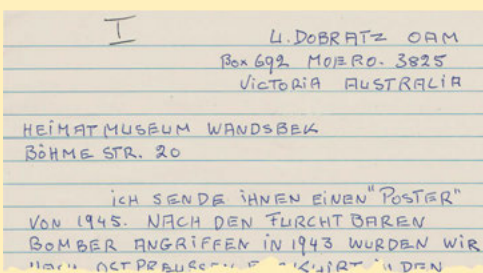 I
U. DOBRATZ OAM
Box 692 MOERO. 3825
VICTORIA AUSTRALIA
HEIMATMUSEUM WANDSBEK
BÖHME STR. 20
ICH SENDE IHNEN EINEN "POSTER"
VON 1945. NACH DEN FURCHTBAREN
BOMBER ANGRIFFEN IN 1943 WURDEN WIR
NACH OSTPREUSSEN IN DEN